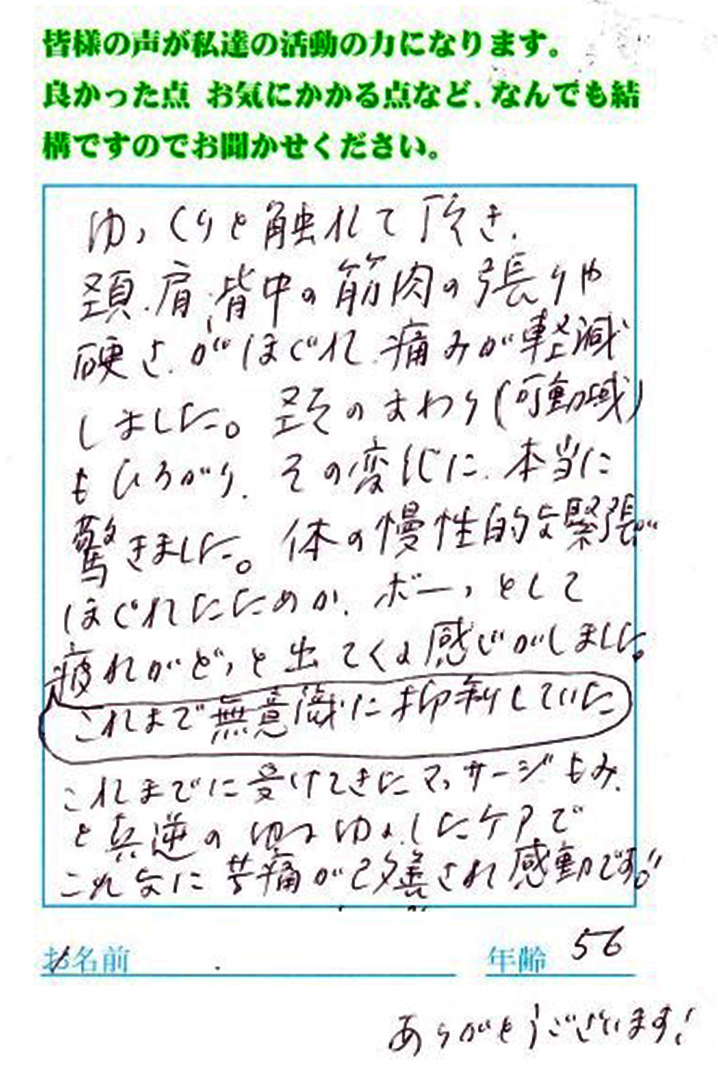 皆様の声が私達の活動の力になります。
良かった点 お気にかかる点など、なんでも結
構ですのでお聞かせください。
ゆっくりと触れて頂き、
頚、肩、背中の筋肉の張りや
硬さがほぐれ、痛みが軽減
しました。頚のまわり(可動域)
もひろがり、その変化に、本当に
驚きました。体の慢性的な緊張が
ほぐれたためか、ボーッとして
疲れがどっと出てくる感じがしました。
これまで無意識に抑制していた
これまでに受けてきたマッサージ もみ
と真逆の ゆるゆるしたケアで
これなに苦痛が改善され感動です!!
お名前
年齢 56
ありがとうございます!